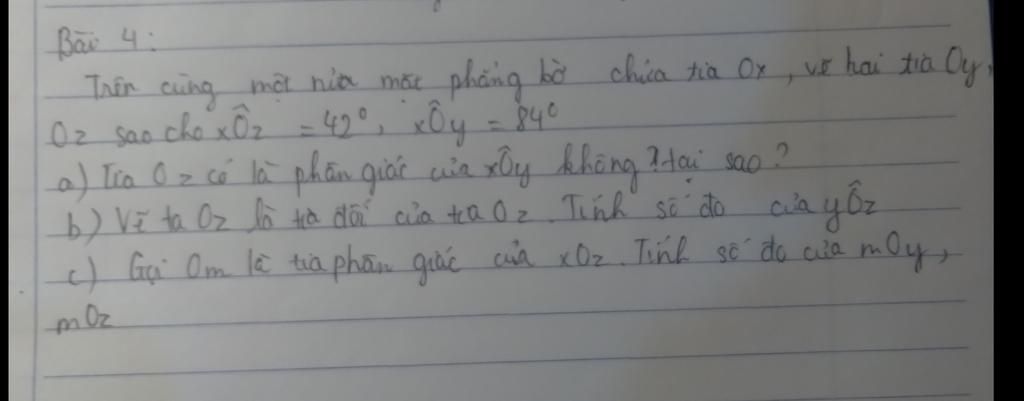 Bài 4:
Trên cùng một nửa mặc phẳng bờ chứa tia Ox, vẽ hai tia Oy,
Oz sao cho xÔz = 42°, xÔy = 84°
a) Tia Oz có là phân giác của xÔy không? tại sao?
b) Vẽ ta Oz là tia đối của tia Oz. Tính số đo của yÔz
c) Gọi Om là tia phân giác của xOz. Tính số đo của mOy,
mOz